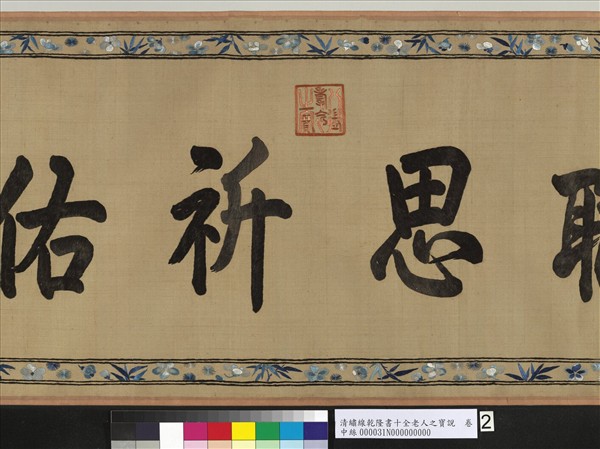 思祈佑
清繡線乾隆書十全老人之寶說　卷
中絲000031N000000000
2